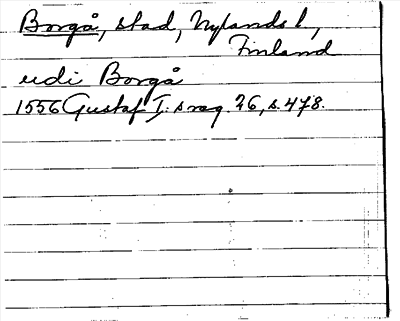 Borgå, stad, Nylands l,
Finland
udi Borgå
1556 Gustaf I:s reg. 26, s. 478.